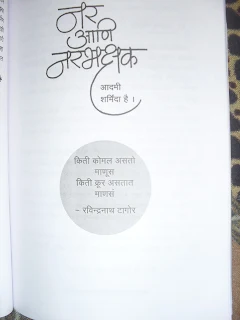 नर
आणि
नरभक्षक
आदमी
शर्मिंदा है ।
किती कोमल असतो
माणूस
किती क्रूर असतात
माणसं
~ रविन्द्रनाथ टागोर